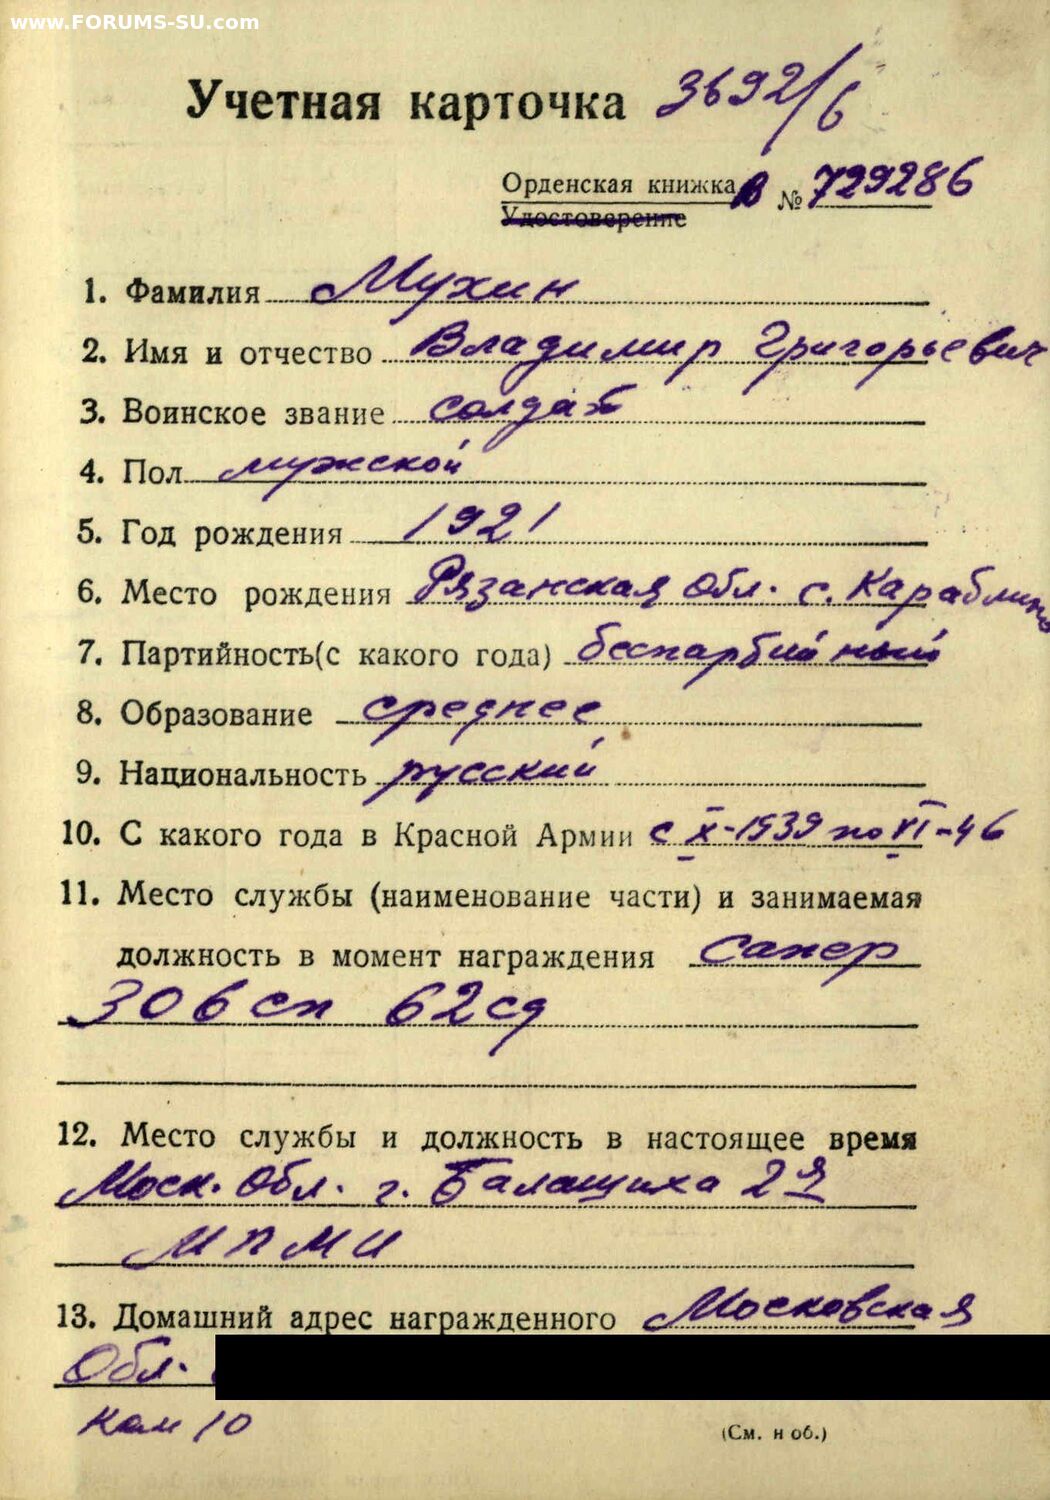 www.FORUMS-SU.com
Учетная карточка 3692/6
Орденская книжка В № 729286
Удостоверение
1. Фамилия Мухин
2. Имя и отчество Владимир Григорьевич
3. Воинское звание солдат
4. Пол мужской
5. Год рождения 1921
6. Место рождения Рязанская обл. с. Караблино
7. Партийность(с какого года) беспартийный
8. Образование среднее
9. Национальность русский
10. С какого года в Красной Армии с X-1939 по VI-46
11. Место службы (наименование части) и занимаемая
должность в момент награждения сапер
306 сп 62 сд
12. Место службы и должность в настоящее время
Моск. Обл. г. Балашиха 2 я
МПМИ
13. Домашний адрес награжденного Московская
Обл.
Ком 10
(См. н об.)